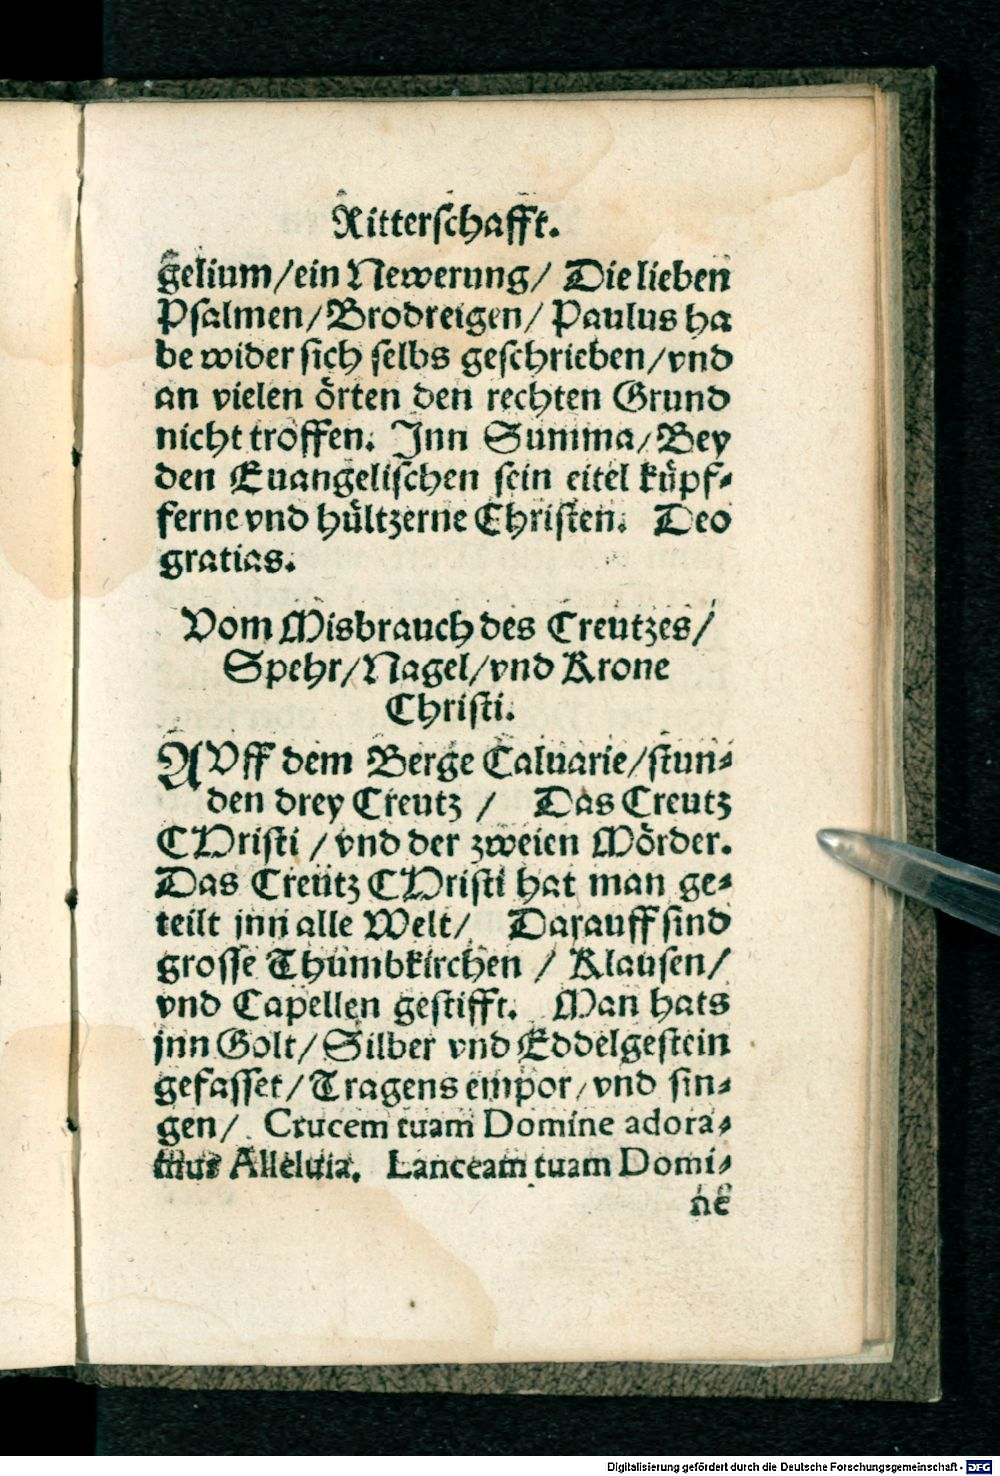 Ritterschafft.
gelium/ein Newerung/ Die lieben
Psalmen/Brodreigen/Paulus ha
be wider sich selbs geschrieben/vnd
an vielen örten den rechten Grund
nicht troffen. Jnn Summa/Bey
den Euangelischen sein eitel küpf-
ferne vnd hültzerne Christen. Deo
gratias.
Vom Misbrauch des Creutzes/
Spehr/Nagel/vnd Krone
Christi.
AVff dem Berge Caluarie/stun-
den drey Creutz / Das Creutz
CHristi /vnd der zweien Mörder.
Das Creutz CHristi hat man ge-
teilt jnn alle Welt/ Darauff sind
grosse Thumbkirchen / Klausen/
vnd Capellen gestifft. Man hats
jnn Golt/Silber vnd Eddelgestein
gefasset/Tragens empor/vnd sin-
gen/ Crucem tuam Domine adora-
mus Alleluia. Lanceam tuam Domi-
ne
Digitalisierung gefördert durch die Deutsche Forschungsgemeinschaft - DFG